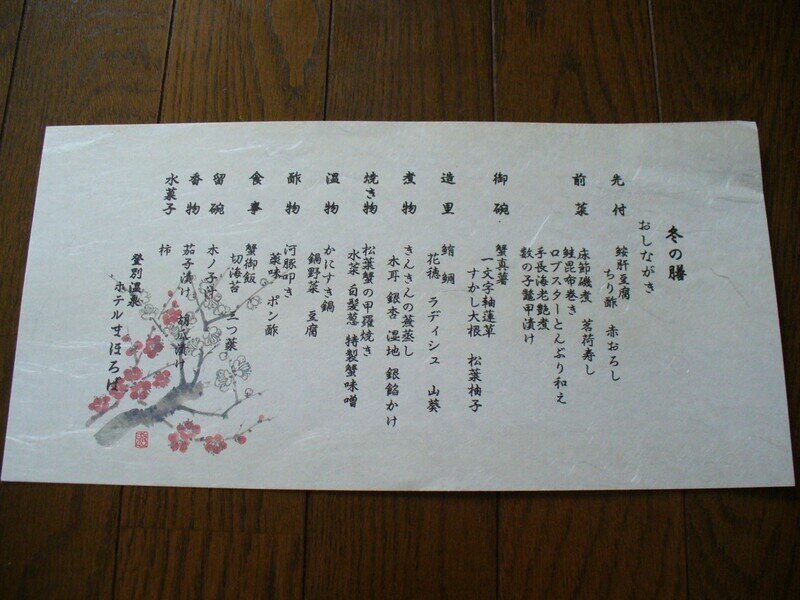 冬の膳
おしながき
先付
鮟肝豆腐
ちり酢 赤おろし
前菜
床節磯煮 茗荷寿し
鮭昆布巻き
ロブスターとんぶり和え
手長海老艶煮
数の子鼈甲漬け
御碗
蟹真薯
一文字軸蓮草
すかし大根 松葉柚子
造里
鮪 鯛
花穂 ラディシュ 山葵
煮物
きんきんの蕪蒸し
木耳 銀杏 湿地 銀餡かけ
焼き物
松葉蟹の甲羅焼き
水菜 白髪葱 特製蟹味噌
温物
かにすき鍋
鍋野菜 豆腐
酢物
河豚叩き
薬味 ポン酢
食事
蟹御飯
切海苔 三つ葉
留碗
木ノ子汁
香物
茄子漬け 胡瓜漬け
水菓子
柿
登別温泉
ホテルまほろば